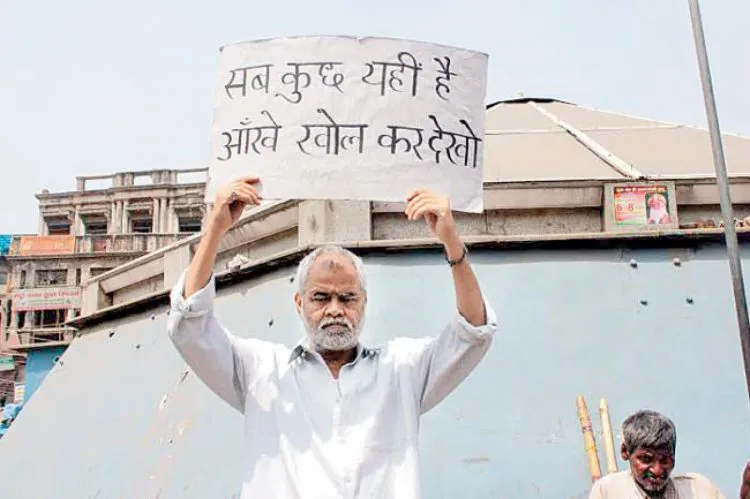 सब कुछ यहीं है
आँखे खोल कर देखो